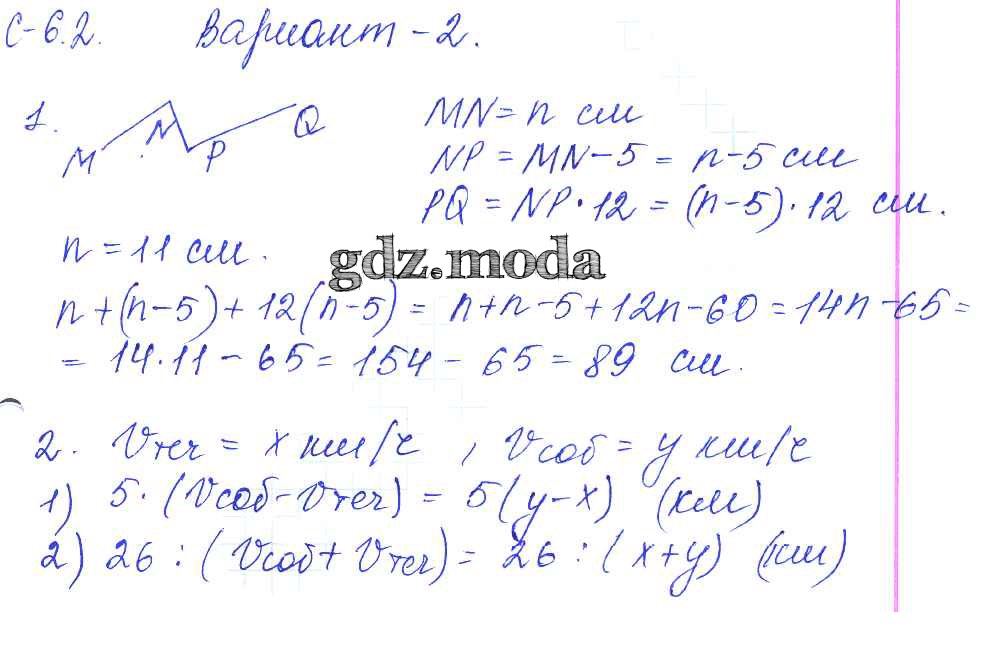 С-6.2. Вариант-2.
1. M N P Q
MN = n см
NP = MN-5 = n-5 см
PQ = NP·12 = (n-5)·12 см.
n = 11 см.
gdz.moda
n+(n-5)+12(n-5) = n+n-5+12n-60 = 14n-65 =
= 14·11 - 65 = 154 - 65 = 89 см.
2. Vтеч = x км/ч, Vсоб = y км/ч
1) 5·(Vсоб-Vтеч) = 5(y-x) (км)
2) 26 : (Vсоб+Vтеч) = 26 : (x+y) (км)